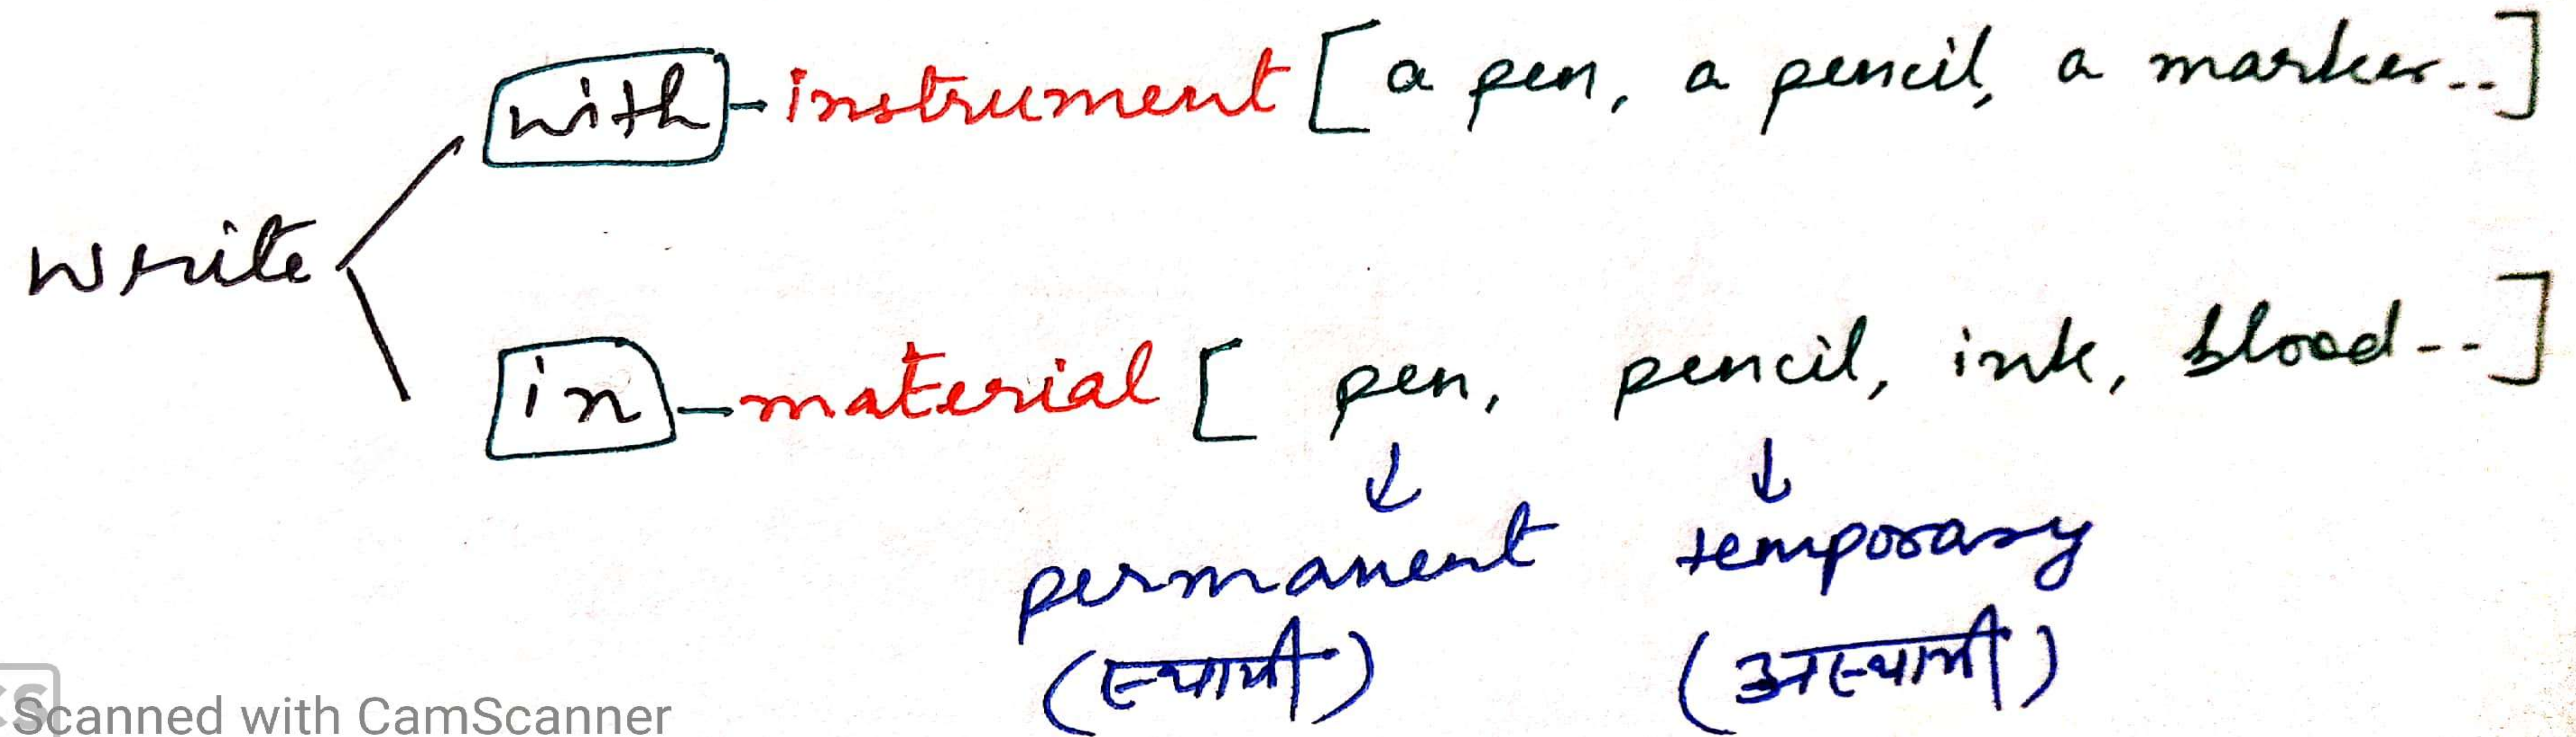 with - instrument [ a pen, a pencil, a marker..]
write
in - material [ pen, pencil, ink, blood--]
↓ ↓
permanent temporary
(स्थायी) (अस्थायी)
CS
Scanned with CamScanner